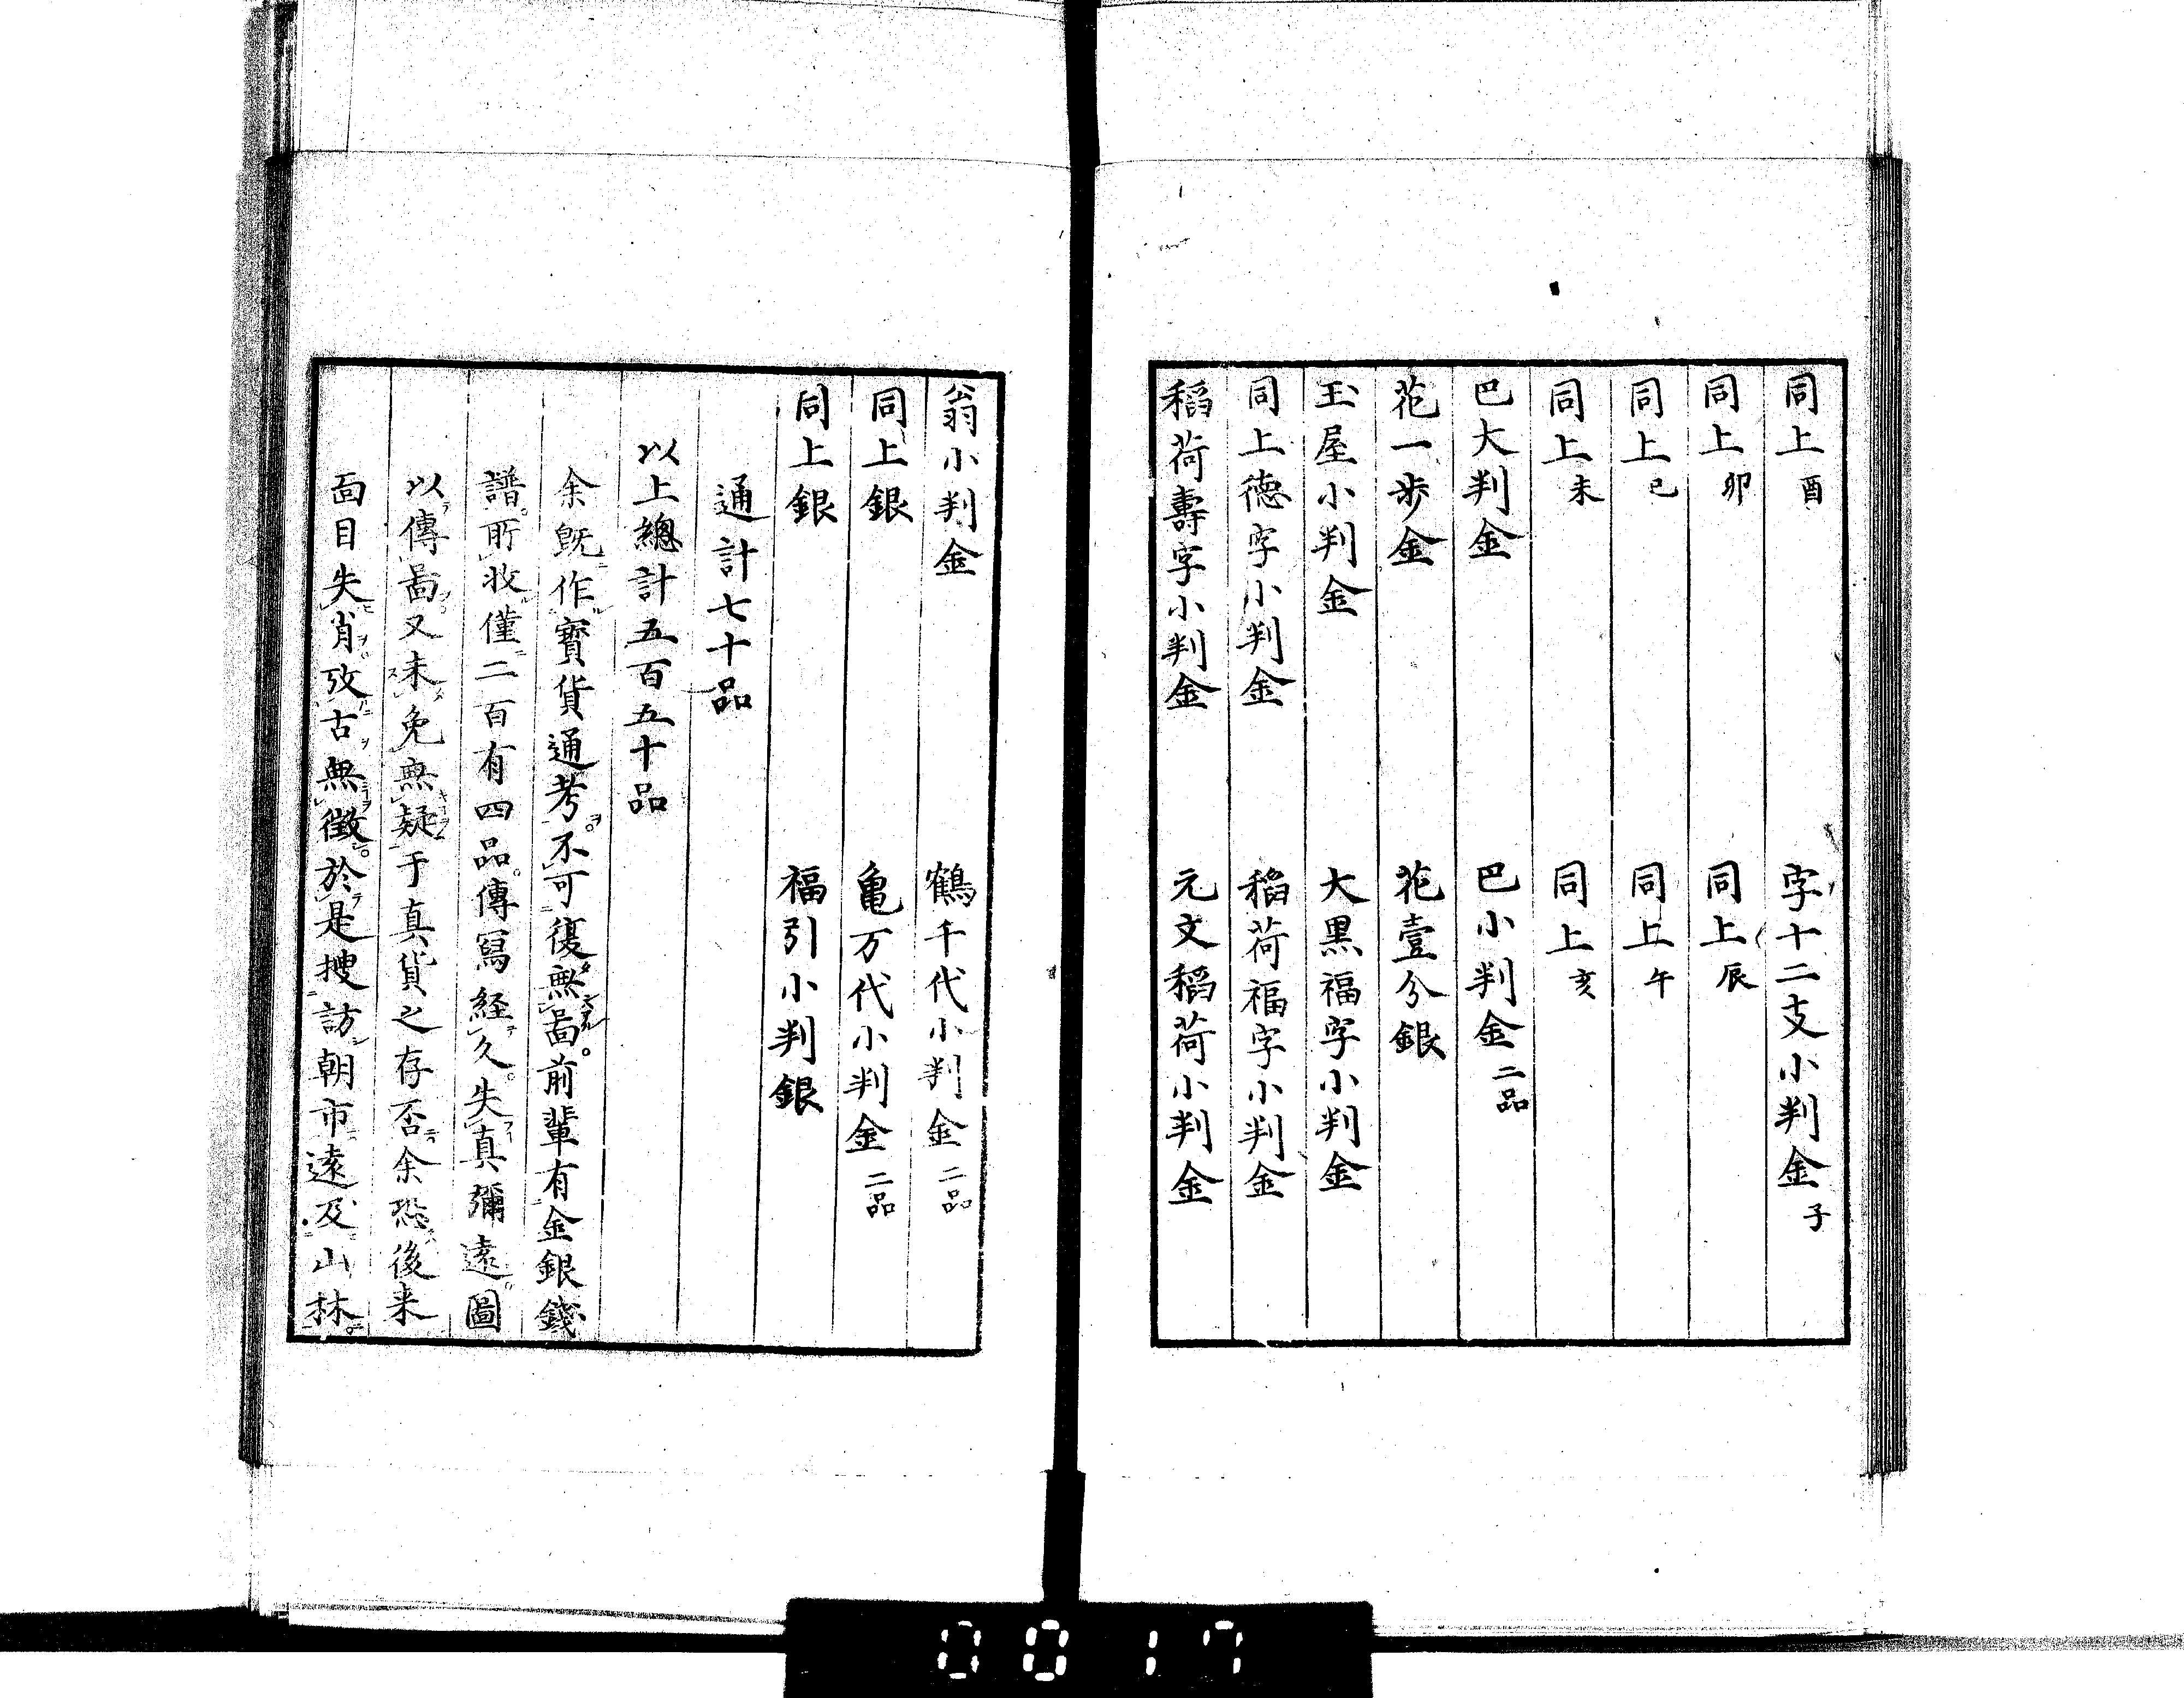 同上酉　字十二支小判金子
同上卯　同上辰
同上巳　同上午
同上未　同上亥
巴大判金　巴小判金二品
花一歩金　花壹分銀
玉屋小判金　大黒福字小判金
同上德字小判金　稻荷福字小判金
稻荷壽字小判金　元文稻荷小判金
翁小判金　鶴千代小判金二品
同上銀　亀万代小判金二品
同上銀　福引小判銀
通計七十品
以上總計五百五十品
余既作寳貨通考不可復無啚前輩有金銀錢
譜所收僅二百有四品傳寫経久失真彌遠圖
以傳啚又未免無疑于真貨之存否余恐後来
面目失肖攷古無徴於是搜訪朝市遠及山林
0017